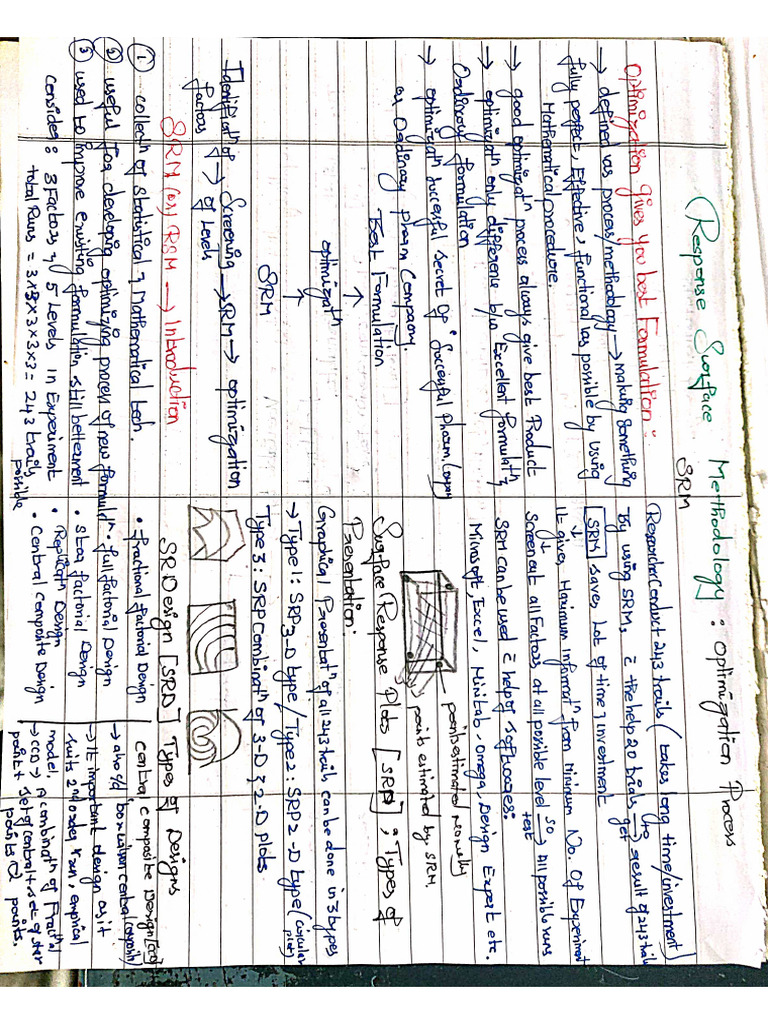 (Response Surface Methodology] : Optimization Process
SRM
Optimization gives you best Formulation :-
→ defined as process/methodology → making something
fully perfect, Effective, functional as possible by using
Mathematical procedure.
→ good optimizatn process always give best Product
→ optimizatn only difference b/w Excellent formulatn &
Ordinary formulation
→ optimizatn successful secret of "Successful pharm Company
or Ordinary pharm Company.
Best Formulation
↑
optimizatn
↑
SRM
Identificatn of → Screening → RM → optimization
factors & of levels
SRM (or) RSM → Introduction
① collectn of Statistical & Mathematical tech.
② useful for developing optimizing process of new formulatn.
③ used to improve exsiting formulation still betterment
consider : 3 Factors & 5 Levels in Experiment
total Runs = 3x3x3x3x3 = 243 trails
possible
Researcher Conduct 243 trails (takes long time/investment)
By using SRMs, c̄ the help 20 trials → result of 243 trails
get
[SRM] saves Lot of time & investment
It gives Maximum informatn from Minimum No. Of Experiment
Screen out all Factors at all possible level → all possible runs
so
test
SRM can be used c̄ help of softwares:
Microsoft, Excel, Minitab, Omega, Design Expert etc.
points estimated normally
points estimated by SRM
Surface Response Plots [SRP], Types of
Presentation:
Graphical Presentatn of all 243 trails can be done in 3 types
→ Type 1: SRP 3-D type / Type 2: SRP 2-D type (circular
plot)
Type 3: SRP Combinatn of 3-D & 2-D plots.
SR Design [SRD] Types of Designs
• fractional factorial Design
• full factorial Design
• Star factorial Design
• Replicatn Design
• Central Composite Design
Central composite Design [CCD]
→ also c/d box wilson central composite
→ It important design as it
suits 2nd order run, empirical
model.
→ CCD → A combinatn of Fractnal
point + set of central + set of star
points & points.